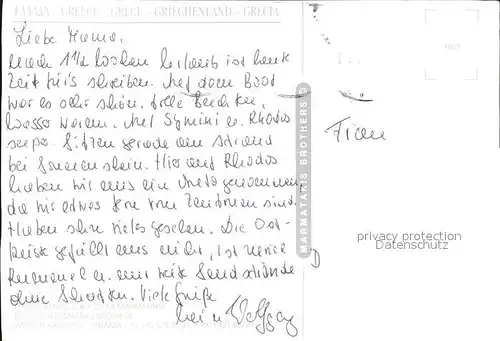 ΕΛΛΑΔΑ - GREECE - GRECE - GRIECHENLAND - GRECIA
Liebe Mama,
Nach 1 1/2 Wochen Urlaub ist heute
Zeit für's schreiben. Auf dem Boot
war es sehr schön. Tolle Buchten,
Wasser warm. Auf Symi u. Rhodos
super. Sitzen gerade am Strand
bei Sonnenschein. Hier auf Rhodos
haben wir uns ein Auto genommen
da wir etwas fern vom Zentrum sind.
Haben schon vieles gesehen. Die Ost-
küste gefällt uns nicht, ist
u. nur Sandstrände
ohne Schatten. Viele Grüße
Wolfgang
MARMATAKIS BROTHERS
Frau
privacy protection
Datenschutz